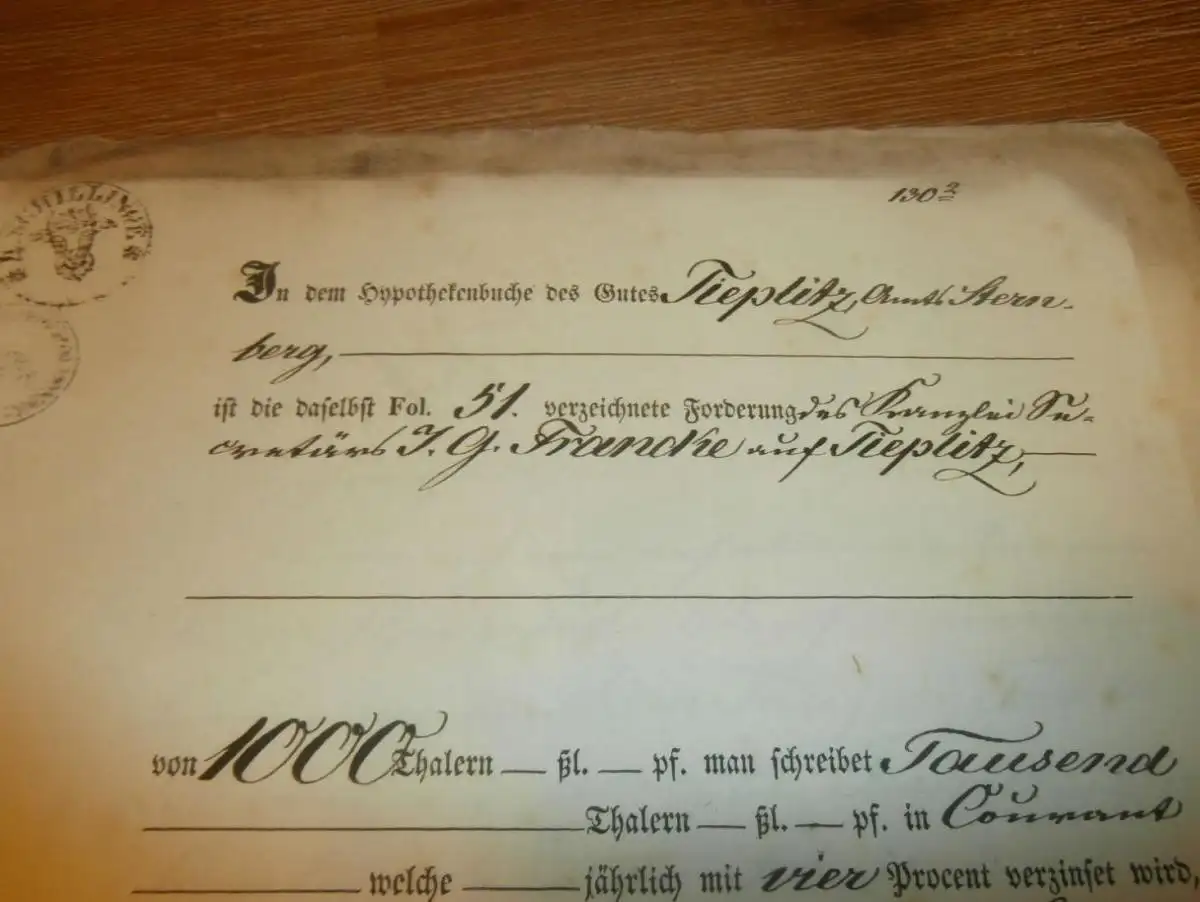 SCHILLINGE
130 2
In dem Hypothekenbuche des Gutes Tieplitz, Amts Stern-
berg,
ist die daselbst Fol. 51. verzeichnete Forderung des Kanzlei Se-
cretärs J. G. Francke auf Tieplitz,
von 1000 Thalern — ßl. — pf. man schreibet Tausend
Thalern — ßl. — pf. in Courant
welche jährlich mit vier Procent verzinset wird,